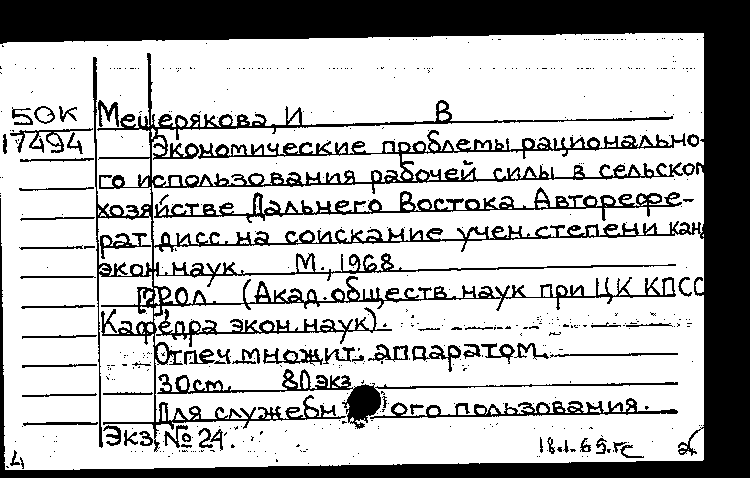 50К
17494
Мещерякова, И В
Экономические проблемы рационально-
го использования рабочей силы в сельском
хозяйстве Дальнего Востока. Авторефе-
рат дисс. на соискание учен. степени канд
экон. наук. М., 1968.
20л. (Акад. обществ. наук при ЦК КПСС
Кафедра экон. наук).
Отпеч. множит. аппаратом.
30см. 80 экз
Для служебн ого пользования.
Экз. № 24.